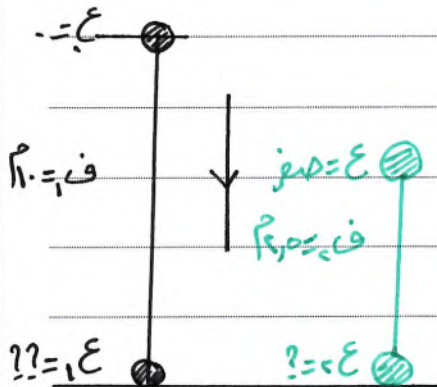 ع.=٠
ف١=١٠م
ع١=??
ع=صفر
ف٢=٢,٥م
ع٢=?